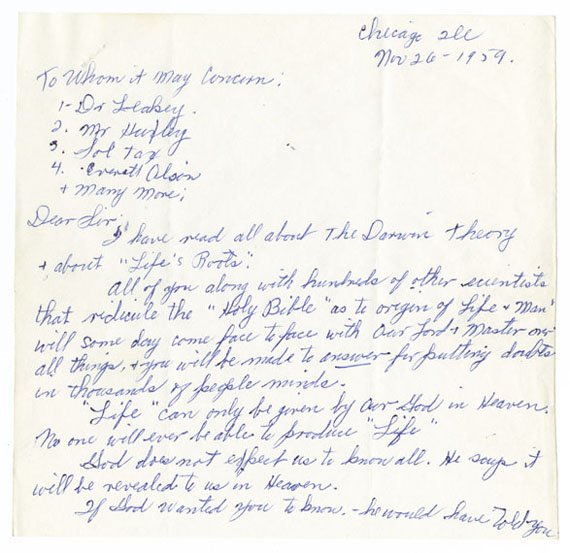 Chicago Ill
Nov 26-1959.
To Whom it May Concern:
1- Dr Leakey.
2. Mr Huxley
3. Sol Tax
4. Everett Olson
+ Many More;
Dear Sir;
I have read all about The Darwin Theory
+ about "Life's Roots".
All of you along with hundreds of other scientists
that ridicule the "Holy Bible" as to origin of Life + Man"
will some day come face to face with Our Lord + Master over
all things, + you will be made to answer for putting doubts
in thousands of people minds.
"Life" can only be given by Our God in Heaven.
No one will ever be able to produce "Life"
God does not expect us to know all. He says it
will be revealed to us in Heaven.
If God wanted you to know. - he would have Told you